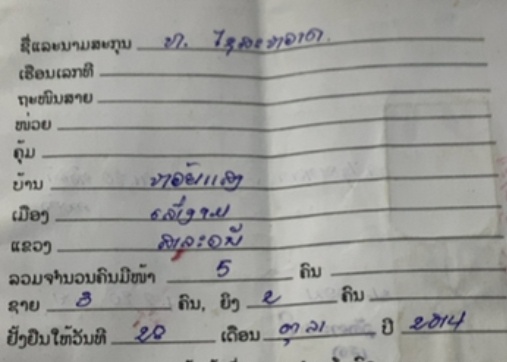 ຊື່ແລະນາມສະກຸນ ທ. ໄຊສະຫວາດ
ເຮືອນເລກທີ
ຖະໜົນສາຍ
ໜ່ວຍ
ຄຸ້ມ
ບ້ານ
ເມືອງ ເລົ່າງາມ
ແຂວງ ສາລະວັນ
ລວມຈຳນວນຄົນມີໜ້າ 5 ຄົນ
ຊາຍ 3 ຄົນ, ຍິງ 2 ຄົນ
ຢັ້ງຢືນໃຫ້ວັນທີ 28 ເດືອນ ຕຸລາ ປີ 2014